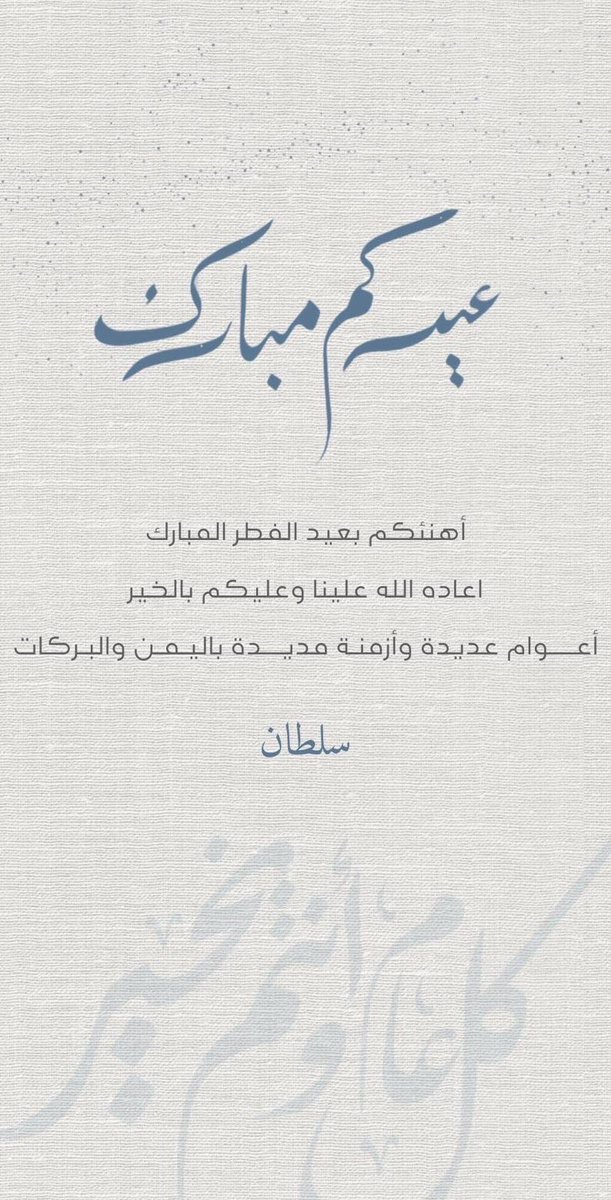 عيدكم مبارك
أهنئكم بعيد الفطر المبارك
اعاده الله علينا وعليكم بالخير
أعـــوام عديدة وأزمنة مديـــدة باليـمـن والبركات
سلطان
كل عام وأنتم بخير